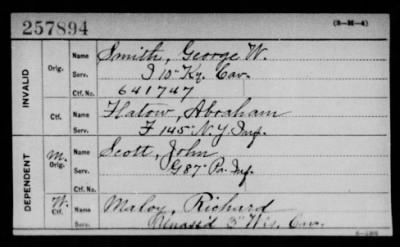 257894
(3-M-4)
INVALID
Orig.
Name Smith, George W.
Serv. I 10" Ky. Cav.
Ctf. No. 641747
Ctf.
Name Flatow, Abraham
Serv. F 145" N.Y. Inf.
DEPENDENT
M. Orig.
Name Scott, John
Serv. G 87" Pa. Inf.
Ctf. No.
W. Ctf.
Name Maloy, Richard
Serv. 3" Wis. Cav.